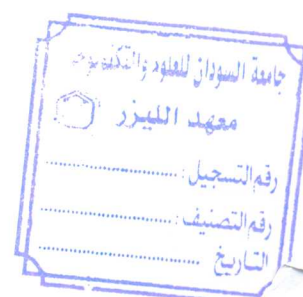 جامعة السودان للعلوم والتكنولوجيا
معهد الليزر
رقم التسجيل : ....................
رقم التصنيف : ....................
التاريخ ....................